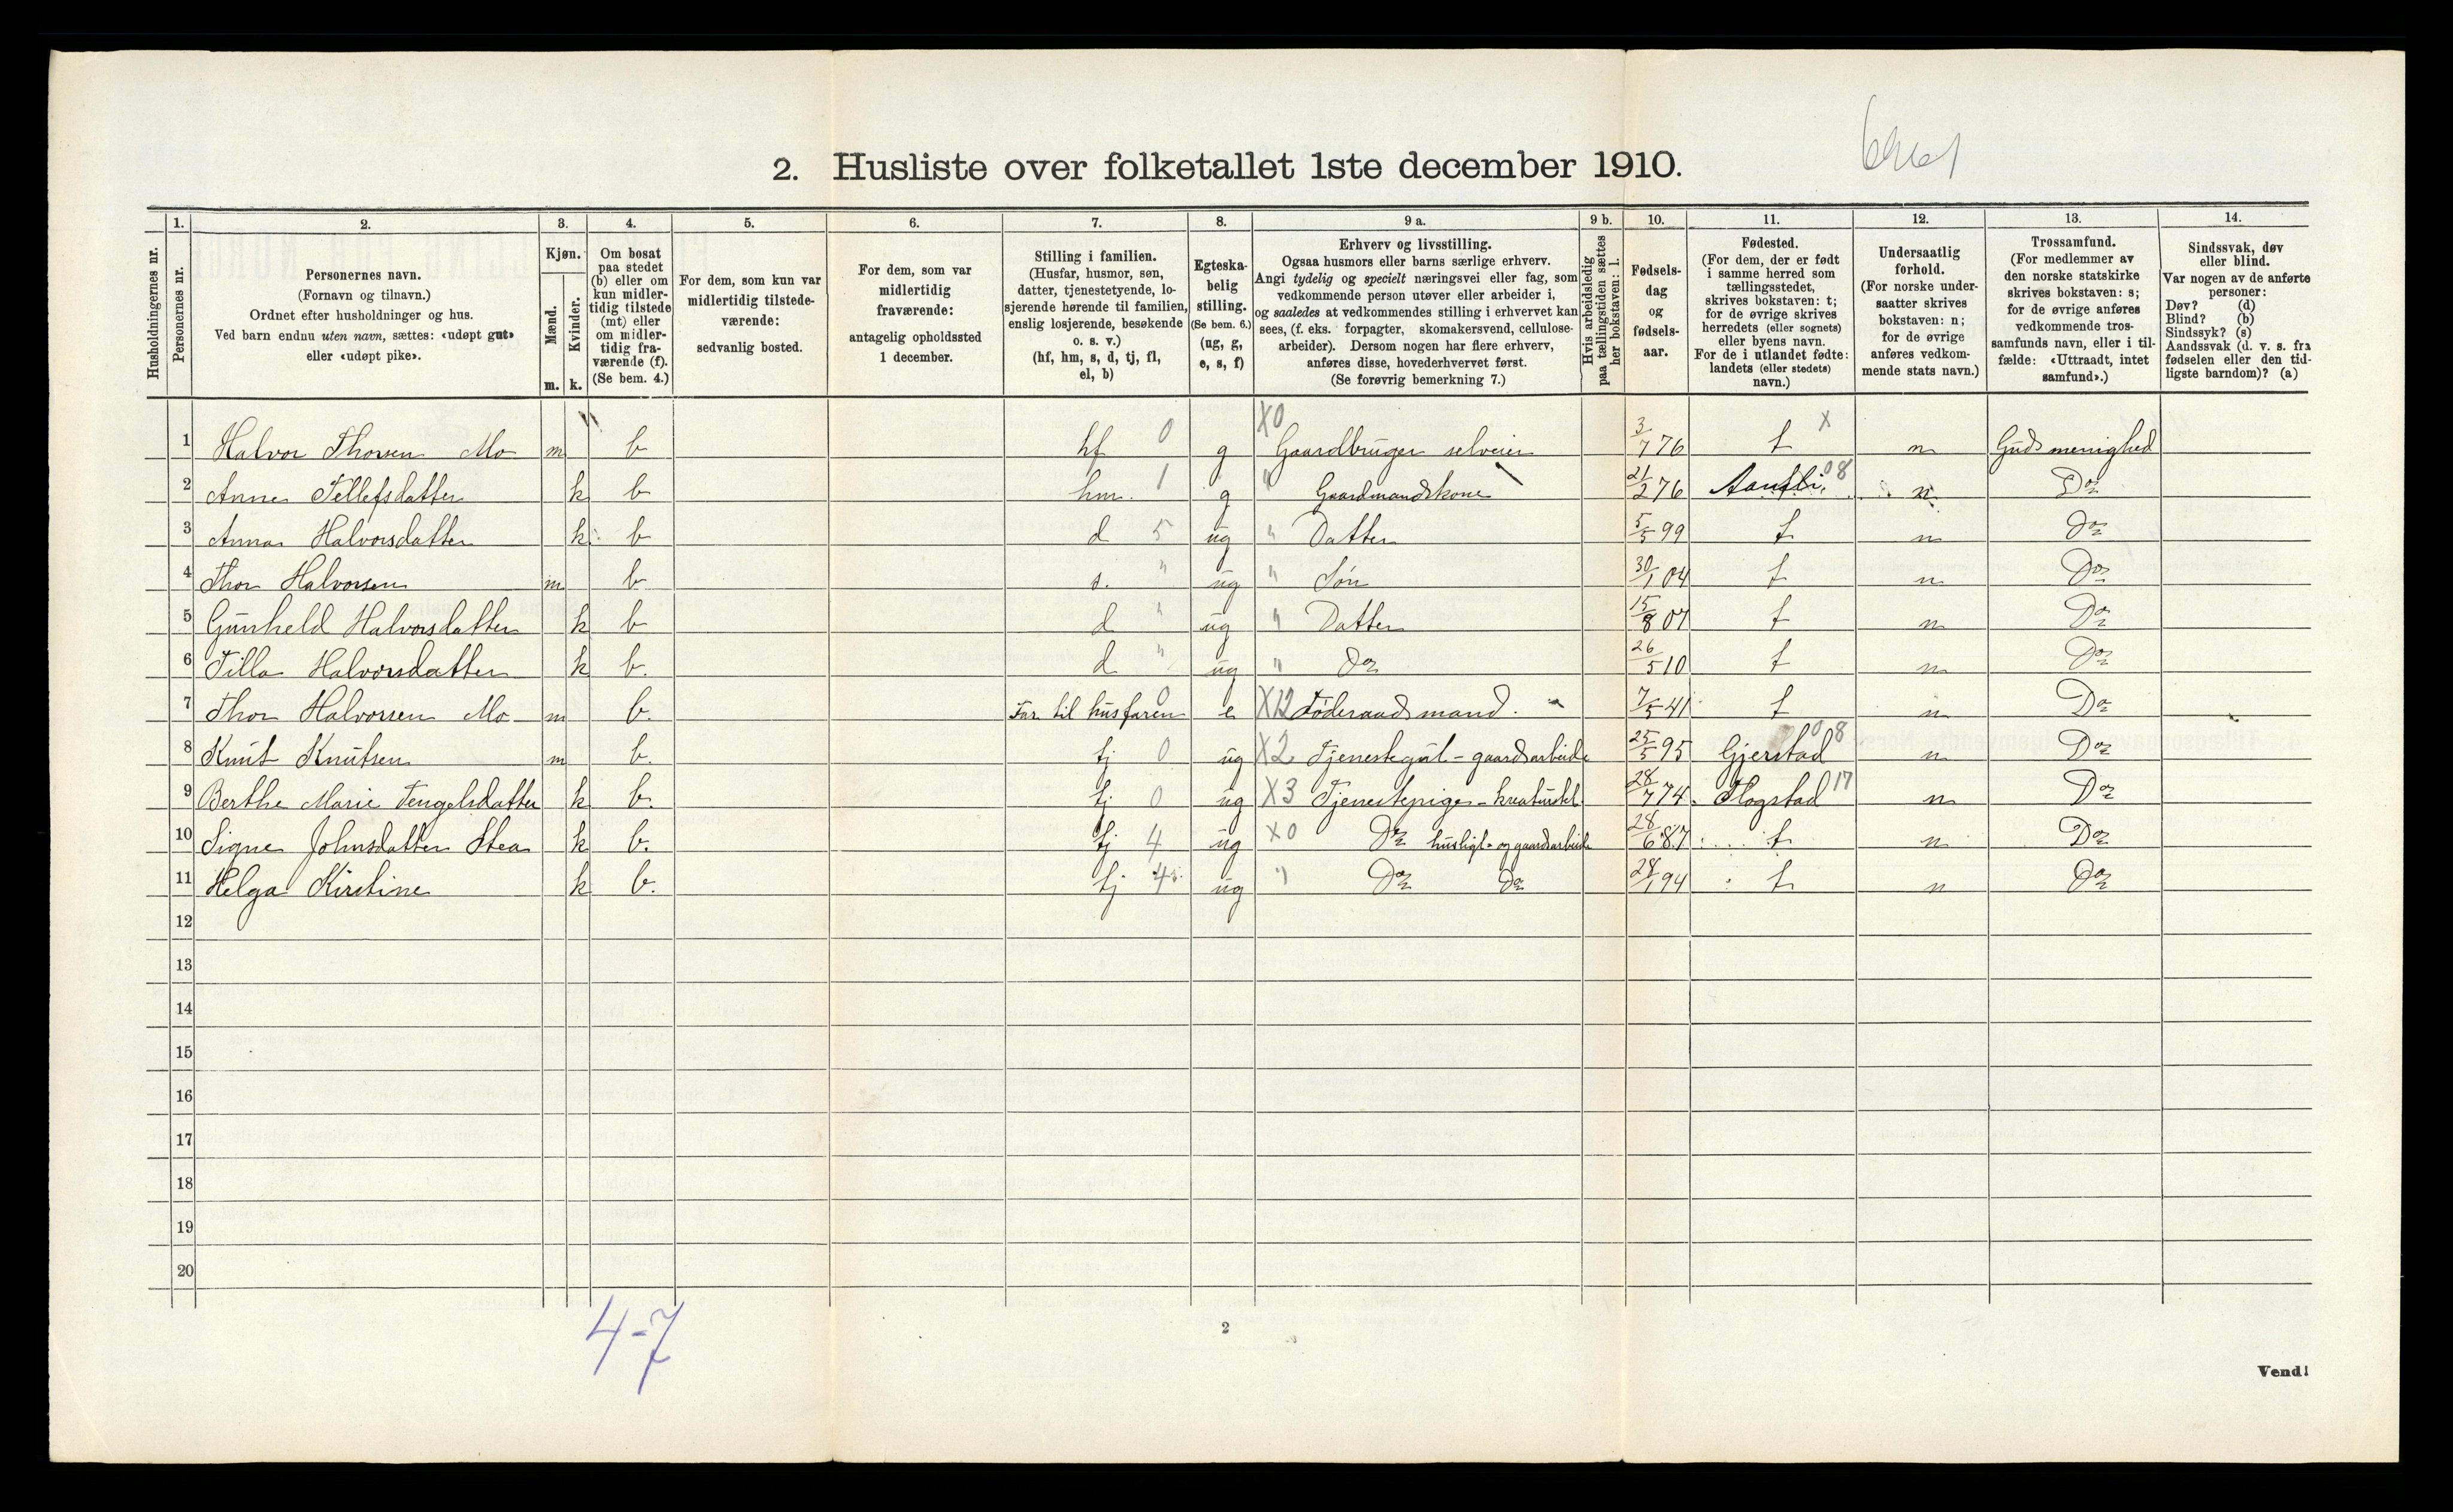 2. Husliste over folketallet 1ste december 1910.
Husholdningernes nr.
1. Personernes nr.
2. Personernes navn. (Fornavn og tilnavn.) Ordnet efter husholdninger og hus. Ved barn endnu uten navn, sættes: «udøpt gut» eller «udøpt pike».
3. Kjøn. Mænd. m. Kvinder. k.
4. Om bosat paa stedet (b) eller om kun midlertidig tilstede (mt) eller om midlertidig fraværende (f). (Se bem. 4.)
5. For dem, som kun var midlertidig tilstedeværende: sedvanlig bosted.
6. For dem, som var midlertidig fraværende: antagelig opholdssted 1 december.
7. Stilling i familien. (Husfar, husmor, søn, datter, tjenestetyende, losjerende hørende til familien, enslig losjerende, besøkende o. s. v.) (hf, hm, s, d, tj, fl, el, b)
8. Egteskabelig stilling. (Se bem. 6.) (ug, g, e, s, f)
9 a. Erhverv og livsstilling. Ogsaa husmors eller barns særlige erhverv. Angi tydelig og specielt næringsvei eller fag, som vedkommende person utøver eller arbeider i, og saaledes at vedkommendes stilling i erhvervet kan sees, (f. eks. forpagter, skomakersvend, cellulosearbeider). Dersom nogen har flere erhverv, anføres disse, hovederhvervet først. (Se forøvrig bemerkning 7.)
9 b. Hvis arbeidsledig paa tællingstiden sættes her bokstaven: l.
10. Fødselsdag og fødselsaar.
11. Fødested. (For dem, der er født i samme herred som tællingsstedet, skrives bokstaven: t; for de øvrige skrives herredets (eller sognets) eller byens navn. For de i utlandet fødte: landets (eller stedets) navn.)
12. Undersaatlig forhold. (For norske undersaatter skrives bokstaven: n; for de øvrige anføres vedkommende stats navn.)
13. Trossamfund. (For medlemmer av den norske statskirke skrives bokstaven: s; for de øvrige anføres vedkommende trossamfunds navn, eller i tilfælde: «Uttraadt, intet samfund».)
14. Sindssvak, døv eller blind. Var nogen av de anførte personer: Døv? (d) Blind? (b) Sindssyk? (s) Aandssvak (d. v. s. fra fødselen eller den tidligste barndom)? (a)
1 Halvor Thorsen Mo m b hf 0 g X0 Gaardbruger selveier 3/7 76 t X n Guds menighed
2 Anne Tellefsdatter k b hm. 1 g " Gaardmandskone 21/2 76 08 n Do
3 Anna Halvorsdatter k b d 5 ug " Datter 5/5 99 t n Do
4 Thor Halvorsen m b s. " ug " Søn 30/1 04 t n Do
5 Gunheld Halvorsdatter k b d " ug " Datter 15/8 07 t n Do
6 Tilla Halvorsdatter k b. d " ug " Do 26/5 10 t n Do
7 Thor Halvorsen Mo m b. Far til husfaren 0 e X12 Føderaadsmand. 7/5 41 t n Do
8 Knut Knutsen m b. tj 0 ug X2 Tjenestegut - gaardsarbeide 25/5 95 Gjerstad 08 n Do
9 Berthe Marie Tengelsdatter k b. tj 0 ug X3 Tjenestepige - kreaturstel 28/7 74 17 n Do
10 Signe Johnsdatter Stea k b. tj 4 ug X0 Do husligt- og gaardsarbeide 28/6 87 t n Do
11 Helga Kirstine k b. tj 4 ug " Do Do 28/1 94 t n Do
12
13
14
15
16
17
18
19
20
4-7
2
Vend!